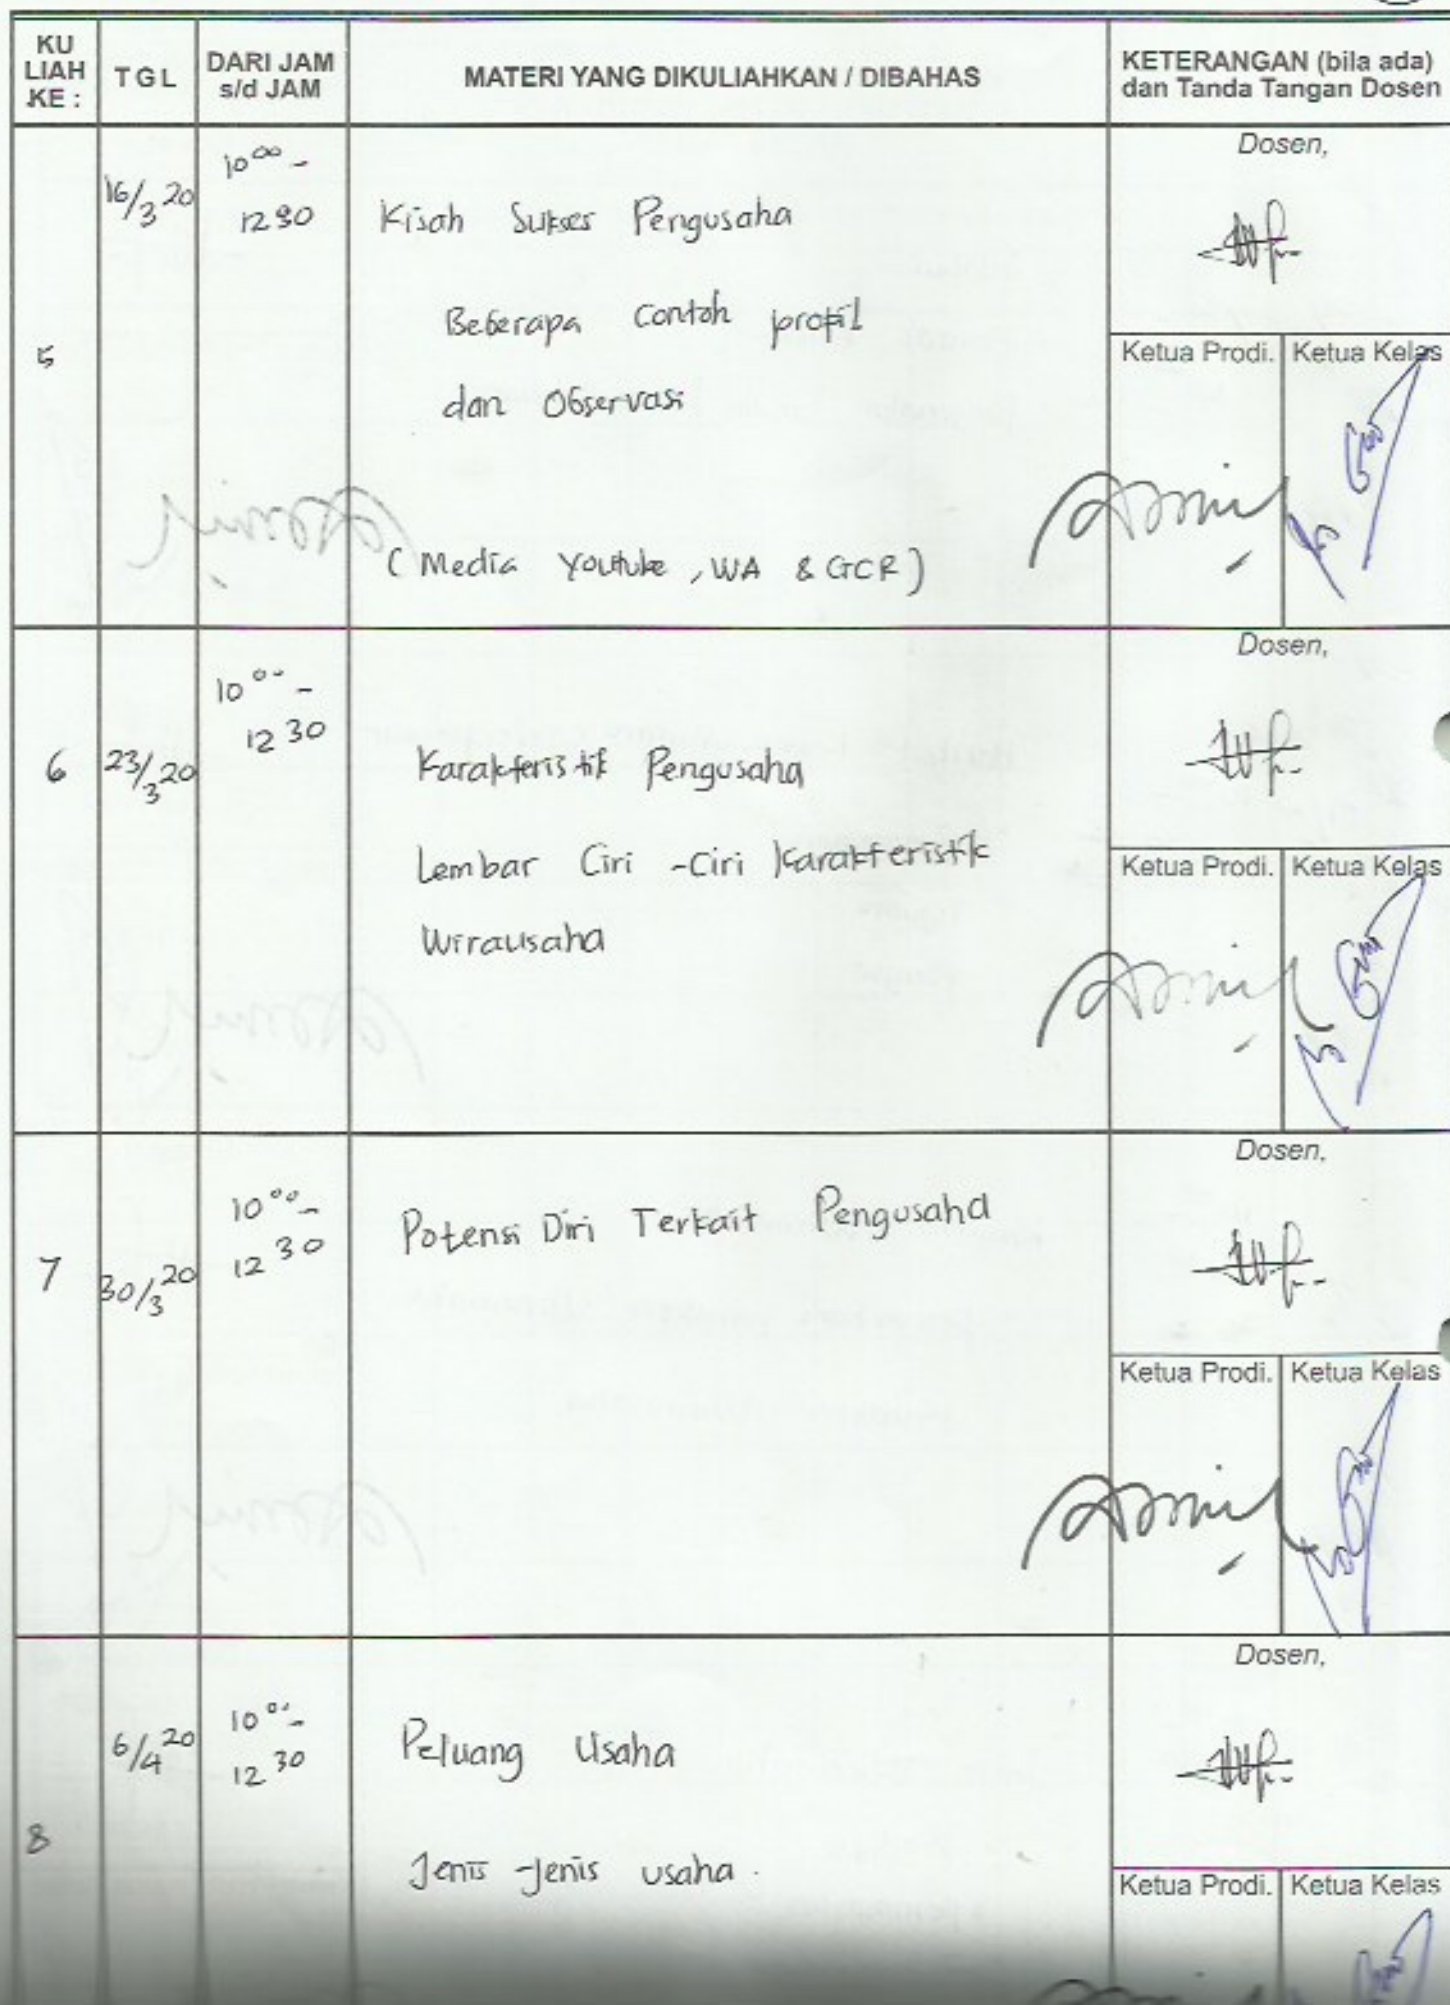 KU
LIAH
KE :
TGL
DARI JAM
s/d JAM
MATERI YANG DIKULIAHKAN / DIBAHAS
KETERANGAN (bila ada)
dan Tanda Tangan Dosen
5
16/3 20
10 00 -
12 30
Kisah Sukses Pengusaha
Beberapa Contoh profil
dan Observasi
(Media Youtube, WA & GCR)
Dosen,
Ketua Prodi.
Ketua Kelas
6
23/3 20
10 00 -
12 30
Karakteristik Pengusaha
Lembar Ciri - Ciri Karakteristik
Wirausaha
Dosen,
Ketua Prodi.
Ketua Kelas
7
30/3 20
10 00 -
12 30
Potensi Diri Terkait Pengusaha
Dosen,
Ketua Prodi.
Ketua Kelas
8
6/4 20
10 00 -
12 30
Peluang Usaha
Jenis - Jenis usaha.
Dosen,
Ketua Prodi.
Ketua Kelas